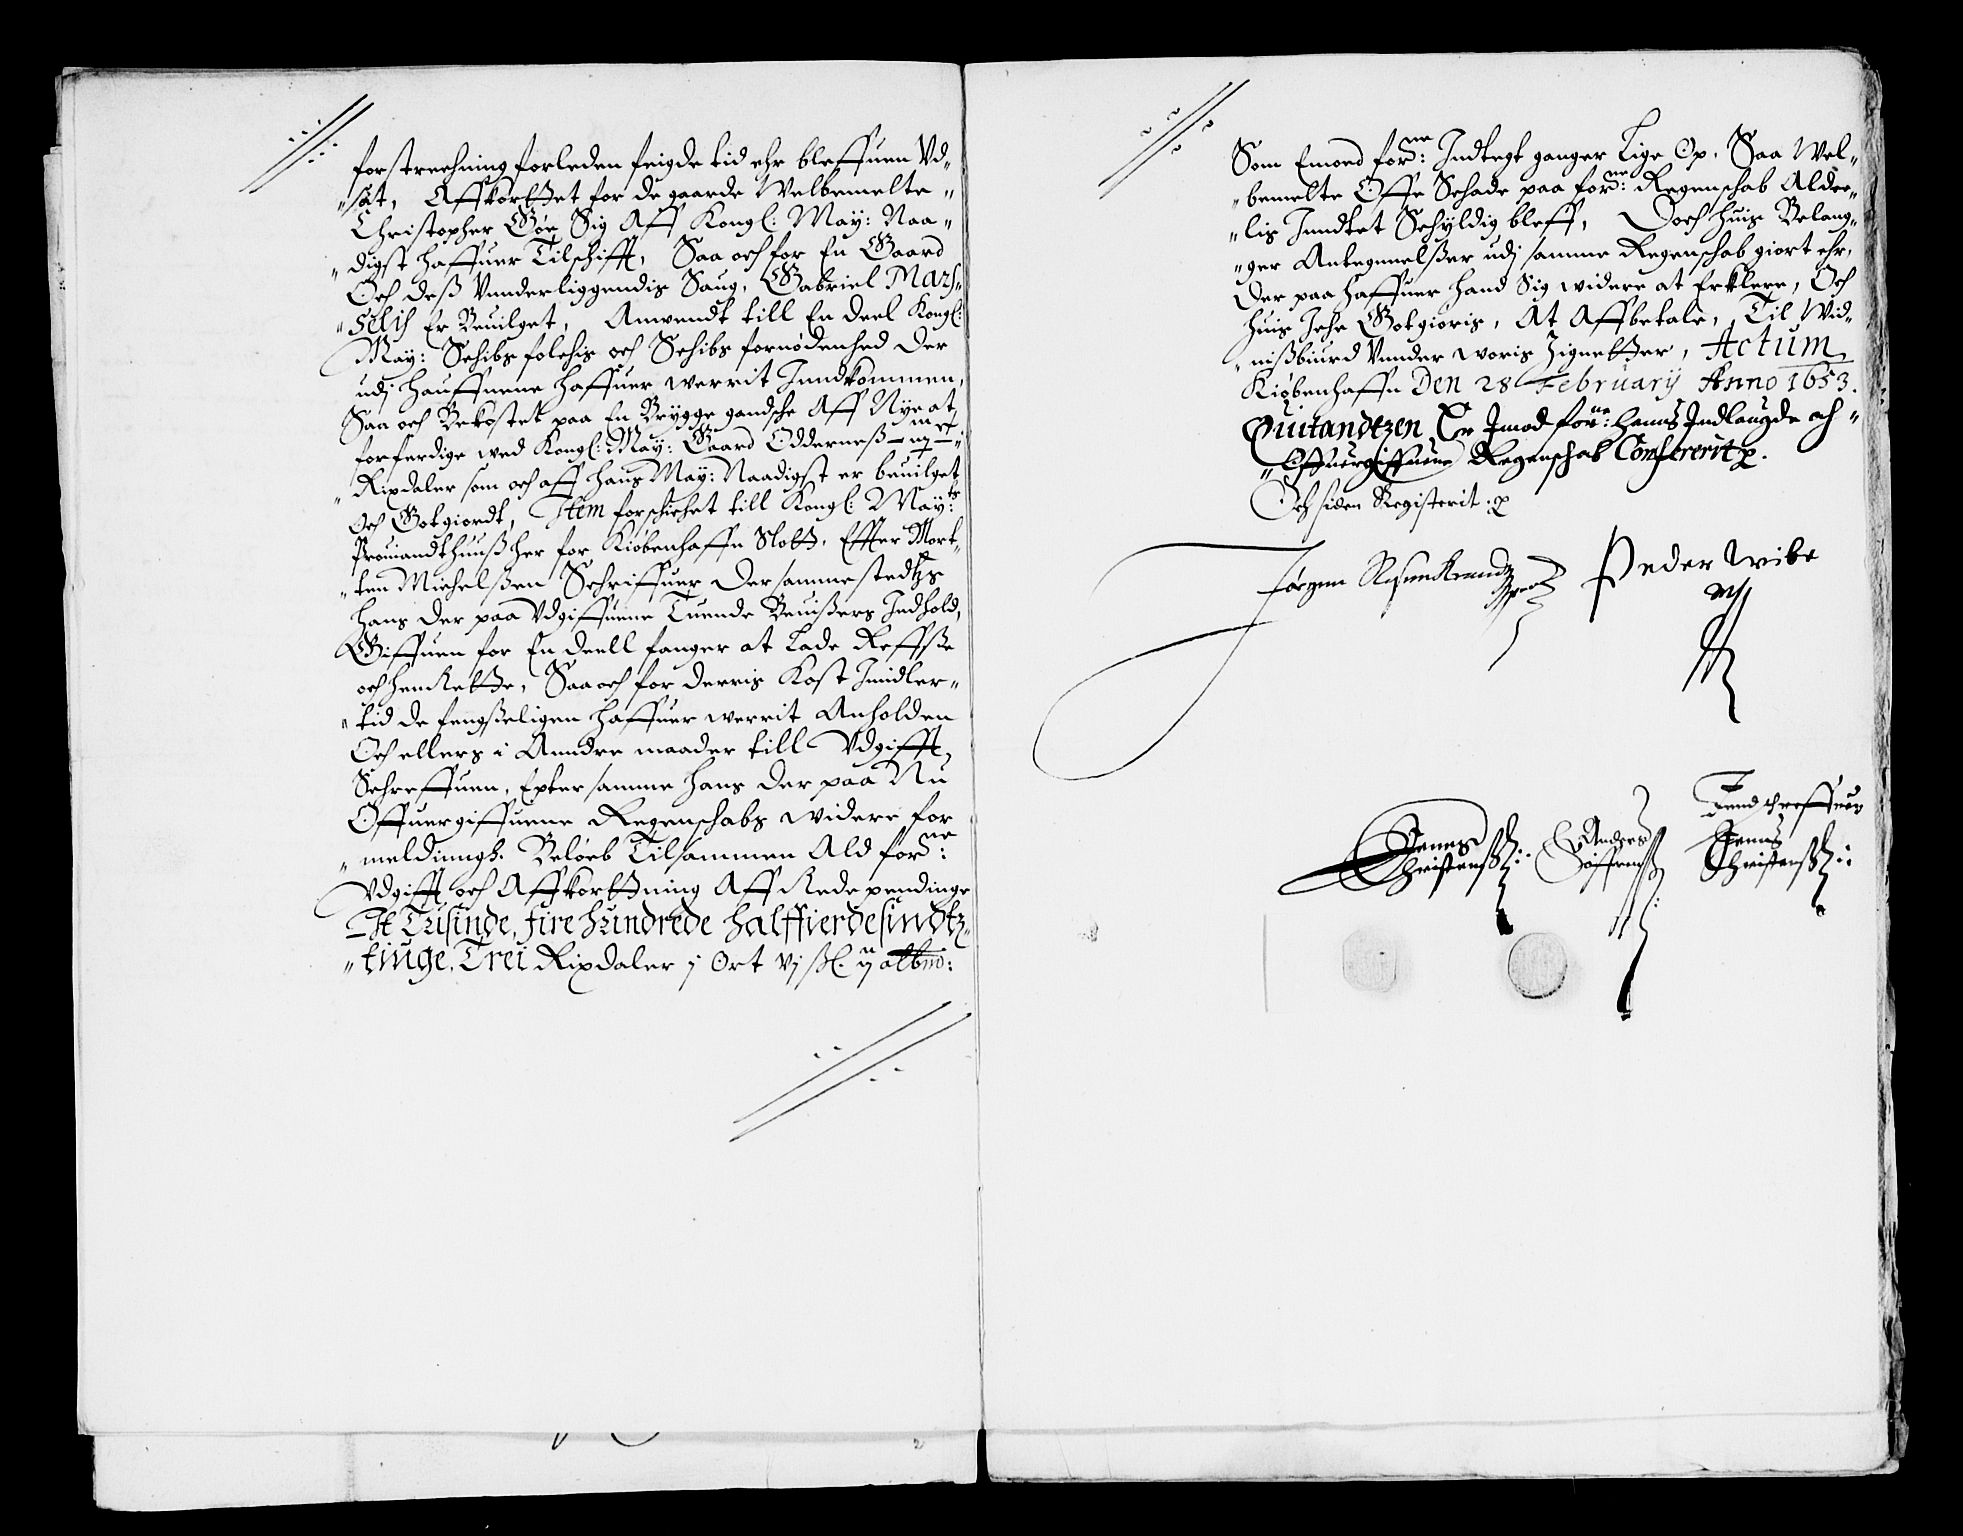 forstrechning forleden feigde tid ehr bleffuen Vd-
"sat, Affkorttet for de gaarde Welbemelte "
Christopher Gøe Sig Aff Kongl: May: Naa-
"digst haffuer Tilschifft, Saa och for En Gaard
Och deß Vnderliggendis Saug, Gabriel Mars-
"selis Er Beuilget, Anwendt till En deel Kongl:
May: Schibs folchis och Schibs fornødenhed Der
udj hauffnene haffuer werrit Inndkommen,
Saa och Bekostet paa En Brygge gandsche Aff Nye at
forferdige wed Kongl: May: Gaard Odderneß
"Rixdaler som och aff hans May: Naadigst er beuilget
och Gotgiordt, Item forschichet till Kongl: May:ts
Prouiandthuuß her for Kiøbenhaffn Slott, Effter Mort-
"ten Michelßen Schriffuer Dersammestedtzs
hans Der paa Vdgiffuene Tuende Beuißers Indhold,
Giffuen for En deell fanger at Lade Reffße
och henRette, Saa och for Derris Kost Imidler-
"tid de fengßeligen haffuer werrit Anholden
Och ellers i Anndre maader till Vdgifft,
Schreffuen, Epter samme hans Der paa Nu
Offuergiffuene Regenschabs widere for
"meldinngh. Beløeb Tilsammen Ald for:ne
Vdgifft och Affkorttning Aff Rede pendinge
It Tusinde, fire hundrede halffierdesindtz-
"tiuge, Trei Rixdaler j Ort vj ßl. ij albno:
Som Emoed for:ne Indtegt ganger Lige Op. Saa Wel-
"bemelte Offe Schade paa for:ne Regenschab Alder-
"lis Inndtet Schyldig bleff, Doch huis Belang-
"ger Antegnnelßer udj samme Regenschab giort ehr,
Der paa haffuer hand Sig widere at Erklere, Och
huis Iche Gotgioris, At Affbetale, Til Wid-
"nißbiurd Vnnder woris Zignetter, Actum
Kiøbenhaffn Den 28 February Anno 1653.
Quitandtzen Er Imod for:ne hans Indlaugde och "
"Offuergiffuene Regenschab Confererit
Och siden Registerit
Jørgen Rosenkrandz Peder Wibe
Jenns Christenß: Anders Tend schreffuer Jenns Christenß: